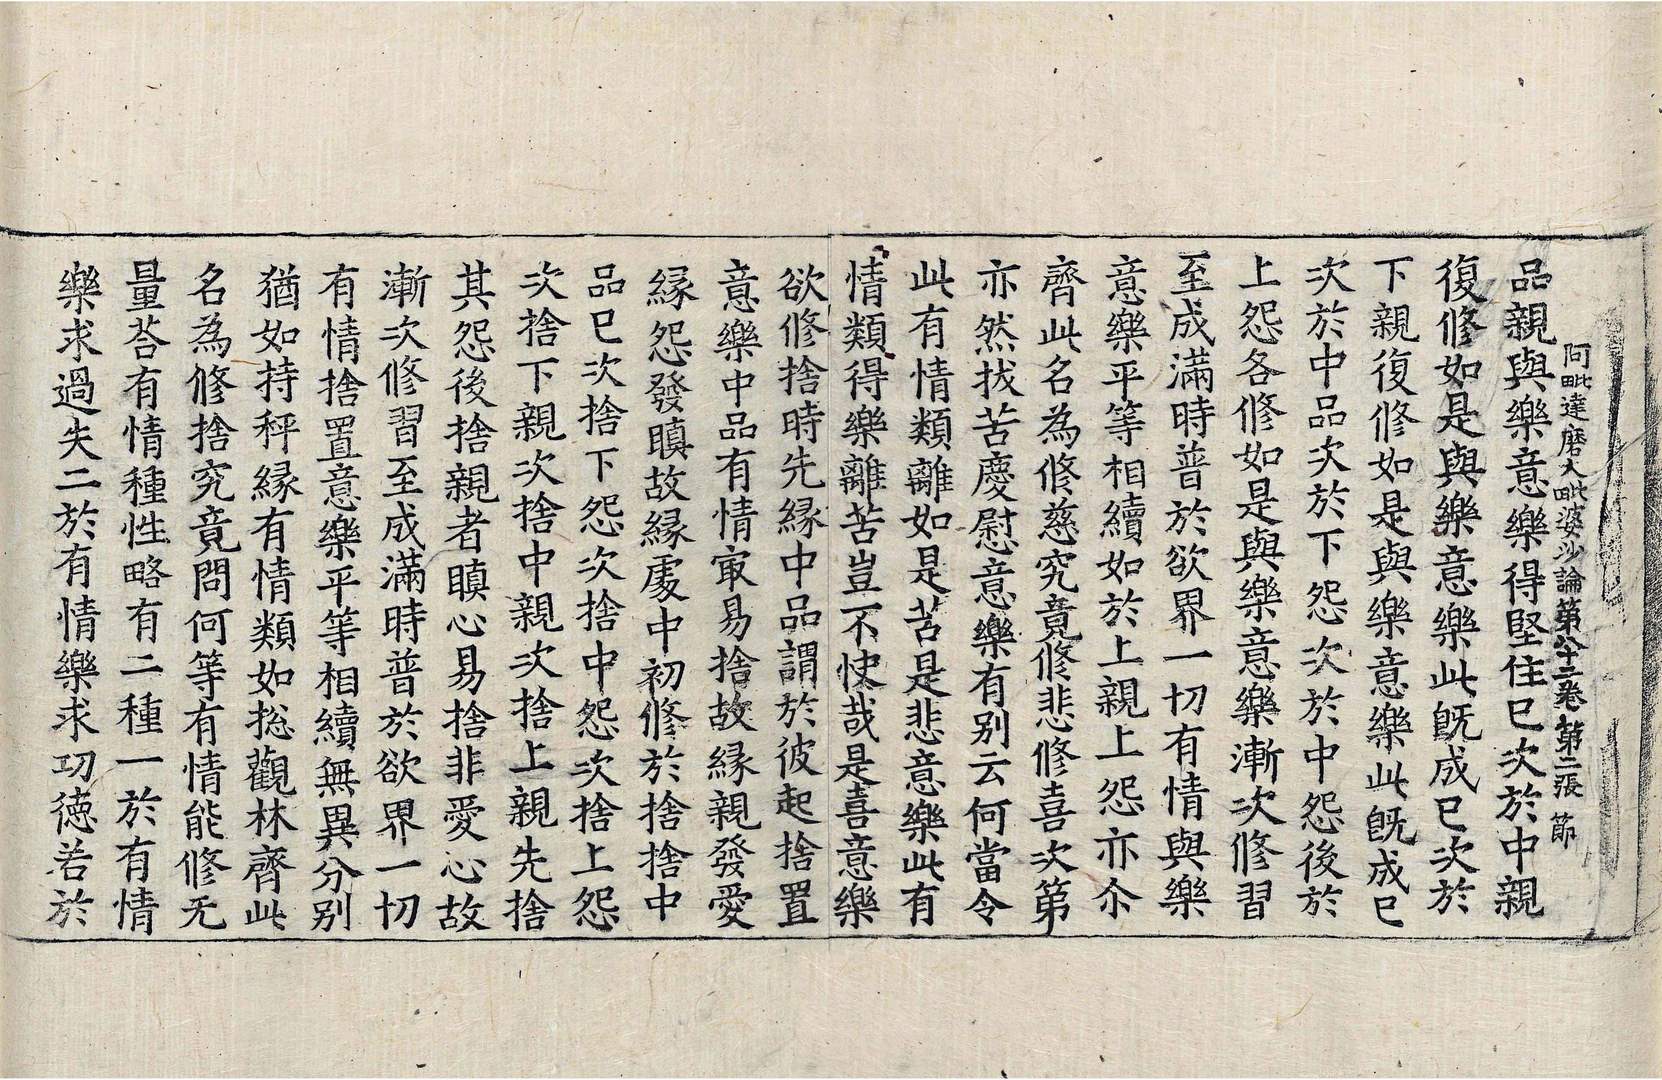 阿毗達磨大毗婆沙論第八十二卷第二張 節
品親與樂意樂得堅住已次於中親
復修如是與樂意樂此旣成已次於
下親復修如是與樂意樂此旣成已
次於中品次於下怨次於中怨後於
上怨各修如是與樂意樂漸次修習
至成滿時普於欲界一切有情與樂
意樂平等相續如於上親上怨亦尒
齊此名為修慈究竟修悲修喜次第
亦然拔苦慶慰意樂有別云何當令
此有情類離如是苦是悲意樂此有
情類得樂離苦豈不快哉是喜意樂
欲修捨時先緣中品謂於彼起捨置
意樂中品有情㝡易捨故緣親發愛
緣怨發瞋故緣處中初修於捨捨中
品已次捨下怨次捨中怨次捨上怨
次捨下親次捨中親次捨上親先捨
其怨後捨親者瞋心易捨非愛心故
漸次修習至成滿時普於欲界一切
有情捨置意樂平等相續無異分別
猶如持秤緣有情類如捴觀林齊此
名為修捨究竟問何等有情能修无
量荅有情種性略有二種一於有情
樂求過失二於有情樂求功德若於